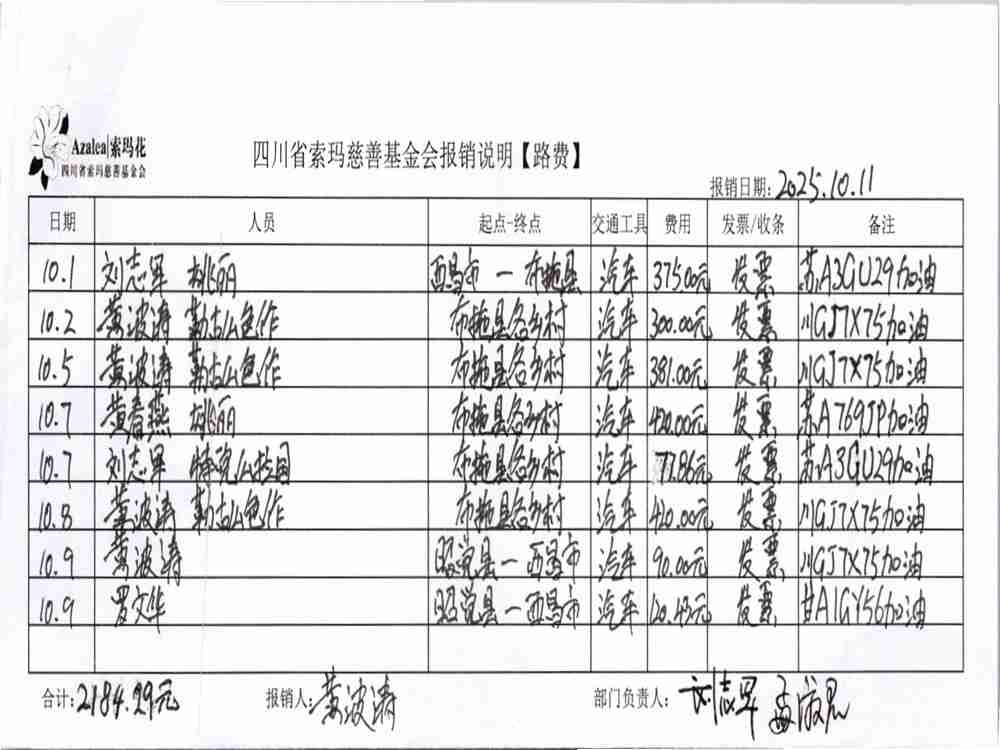 Azalea|索玛花
四川省索玛慈善基金会
四川省索玛慈善基金会报销说明【路费】
报销日期:2025.10.11
日期 人员 起点-终点 交通工具 费用 发票/收条 备注
10.1 刘志军 姚丽 西昌市 — 布拖县 汽车 375.00元 发票 苏A3GU29加油
10.2 黄波涛 勒古么色作 布拖县各乡村 汽车 300.00元 发票 川GJ7X75加油
10.5 黄波涛 勒古么色作 布拖县各乡村 汽车 381.00元 发票 川GJ7X75加油
10.7 黄春燕 姚丽 布拖县各乡村 汽车 420.00元 发票 苏A769JP加油
10.7 刘志军 布拖县各乡村 汽车 77.86元 发票 苏A3GU29加油
10.8 黄波涛 勒古么色作 布拖县各乡村 汽车 420.00元 发票 川GJ7X75加油
10.9 黄波涛 昭觉县 — 西昌市 汽车 90.00元 发票 川GJ7X75加油
10.9 罗文华 昭觉县 — 西昌市 汽车 120.43元 发票 甘A1GY56加油
合计:2184.29元 报销人:黄波涛 部门负责人:刘志军